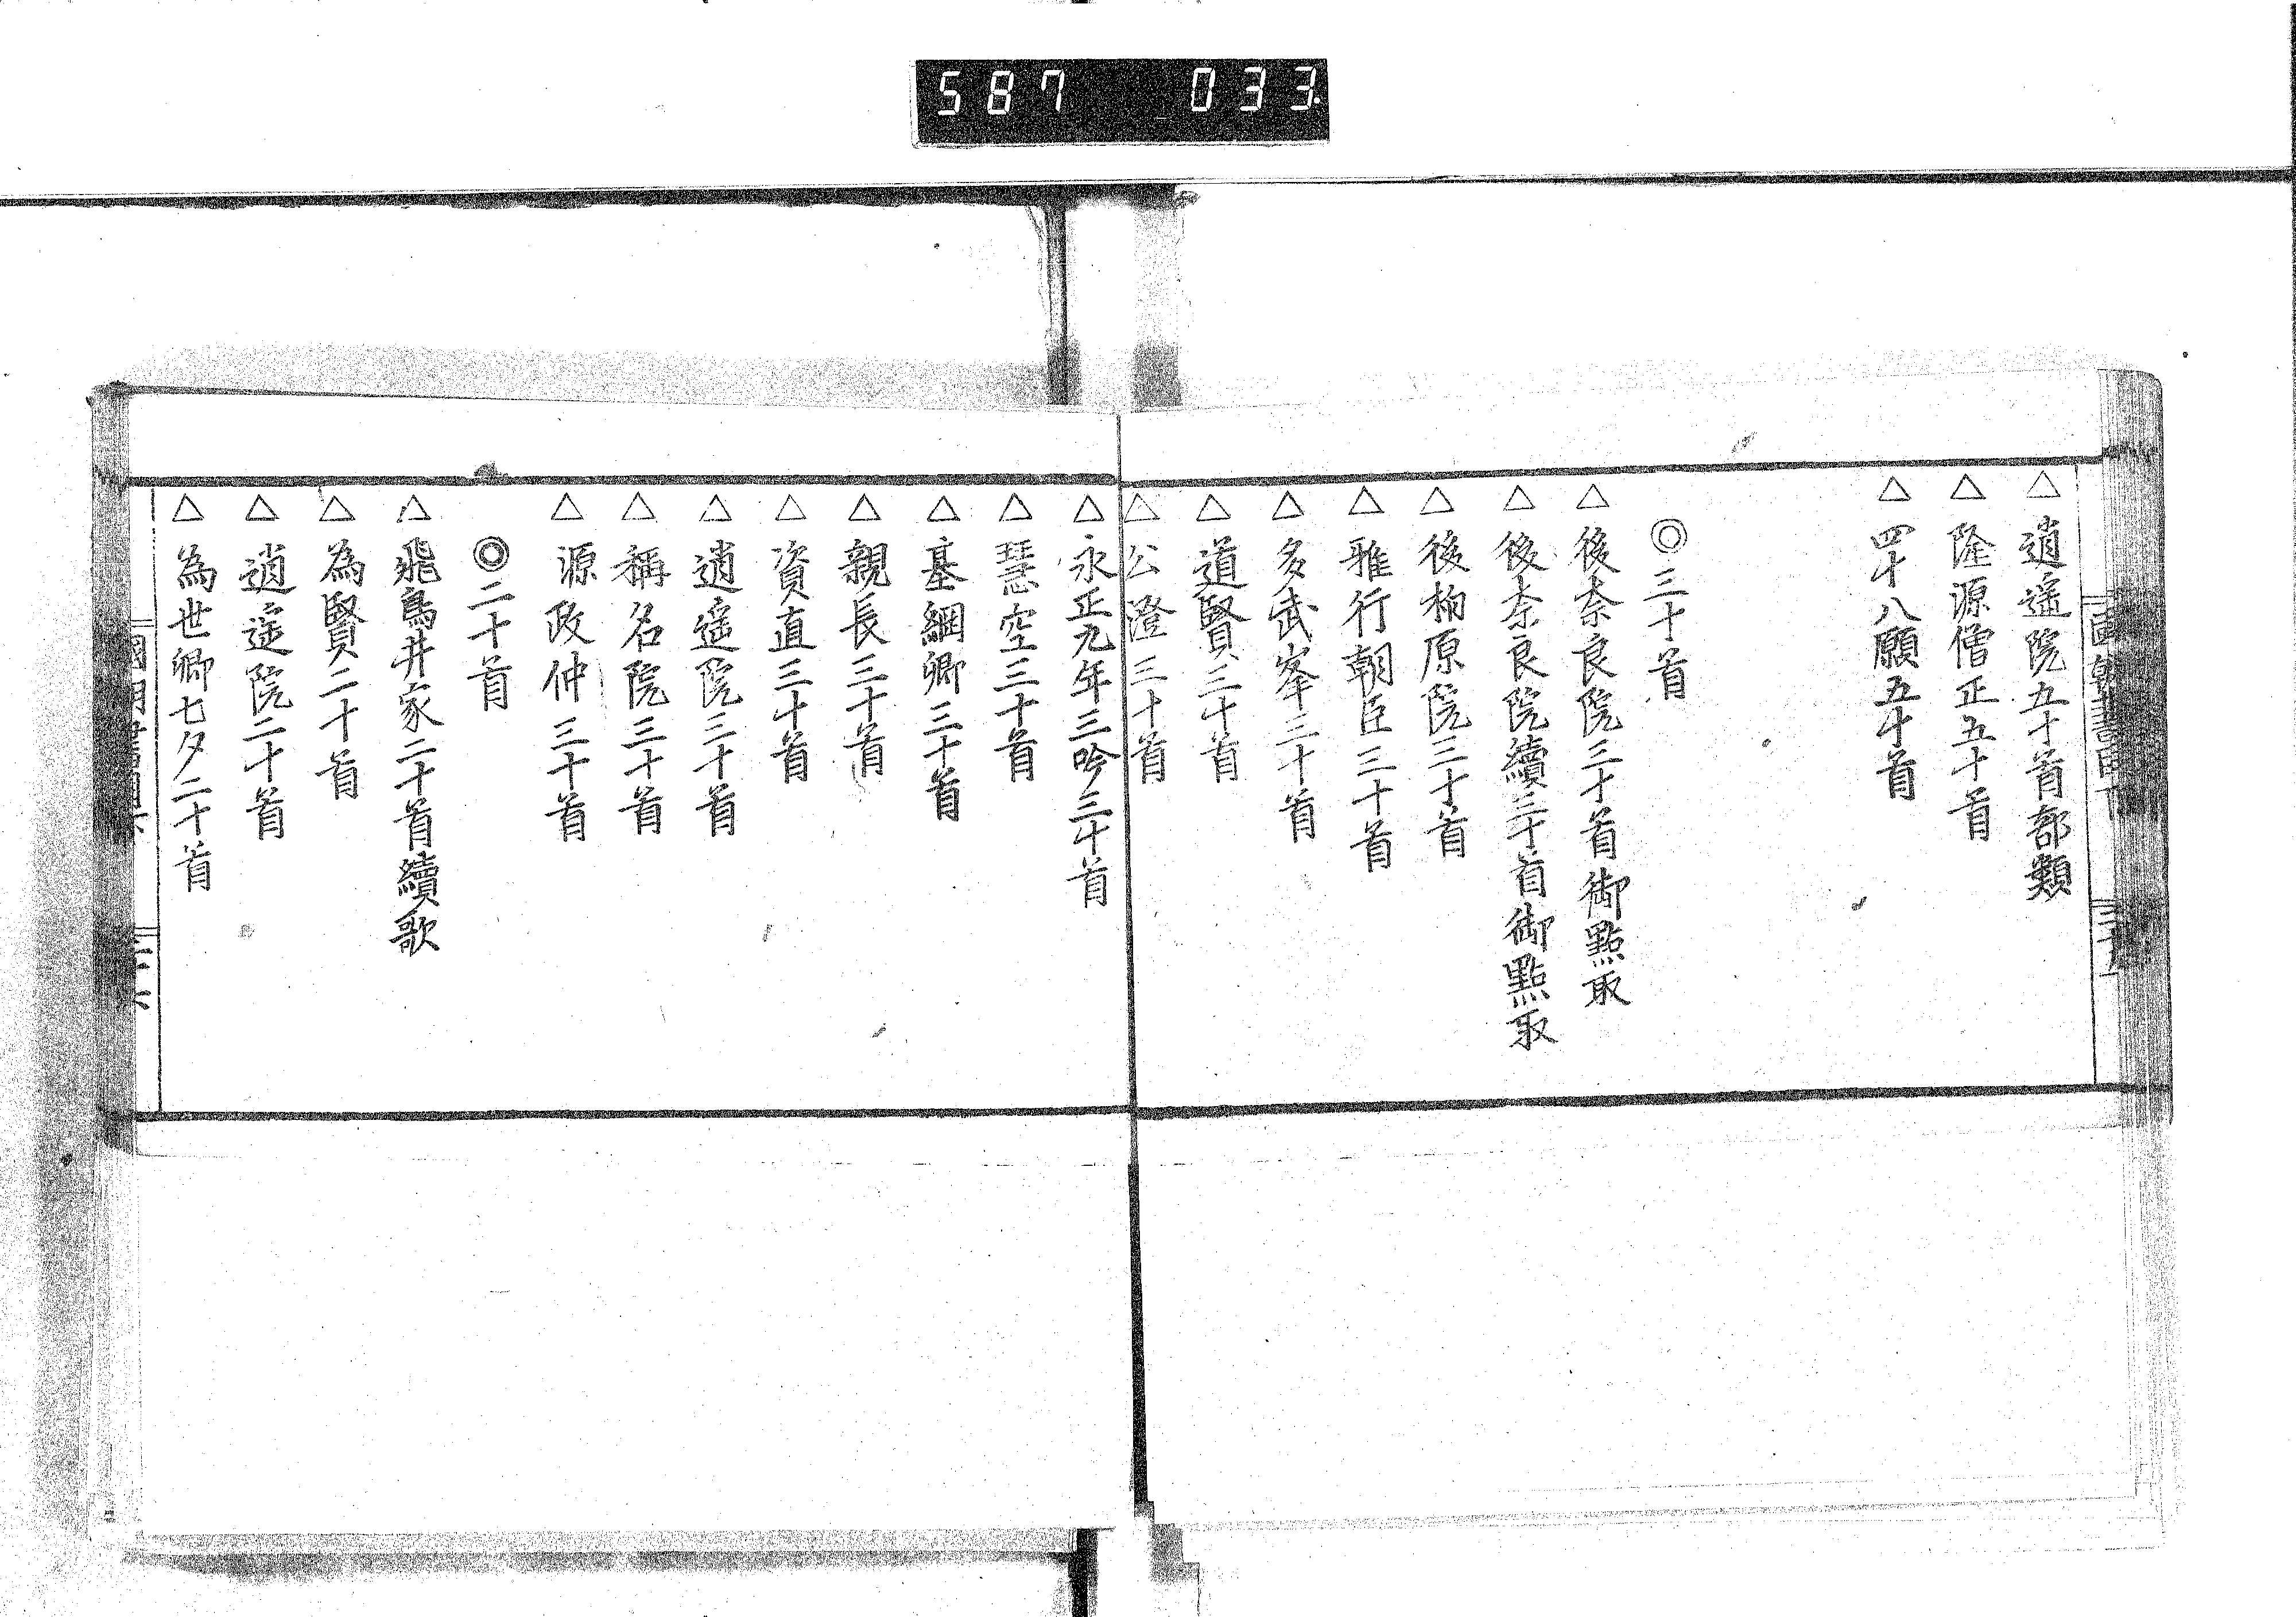 587 033
△逍遥院五十首部類
△隆源僧正五十首
△四十八願五十首
◎三十首
△後奈良院三十首御點取
△後奈良院續三十首御點取
△後柏原院三十首
△雅行朝臣三十首
△多武峯三十首
△道賢三十首
△公澄三十首
△永正九年三吟三十首
△慧空三十首
△基綱卿三十首
△親長三十首
△資直三十首
△逍遥院三十首
△稱名院三十首
△源政仲三十首
◎二十首
△飛鳥井家二十首續歌
△為賢二十首
△逍遥院二十首
△為世卿七夕二十首